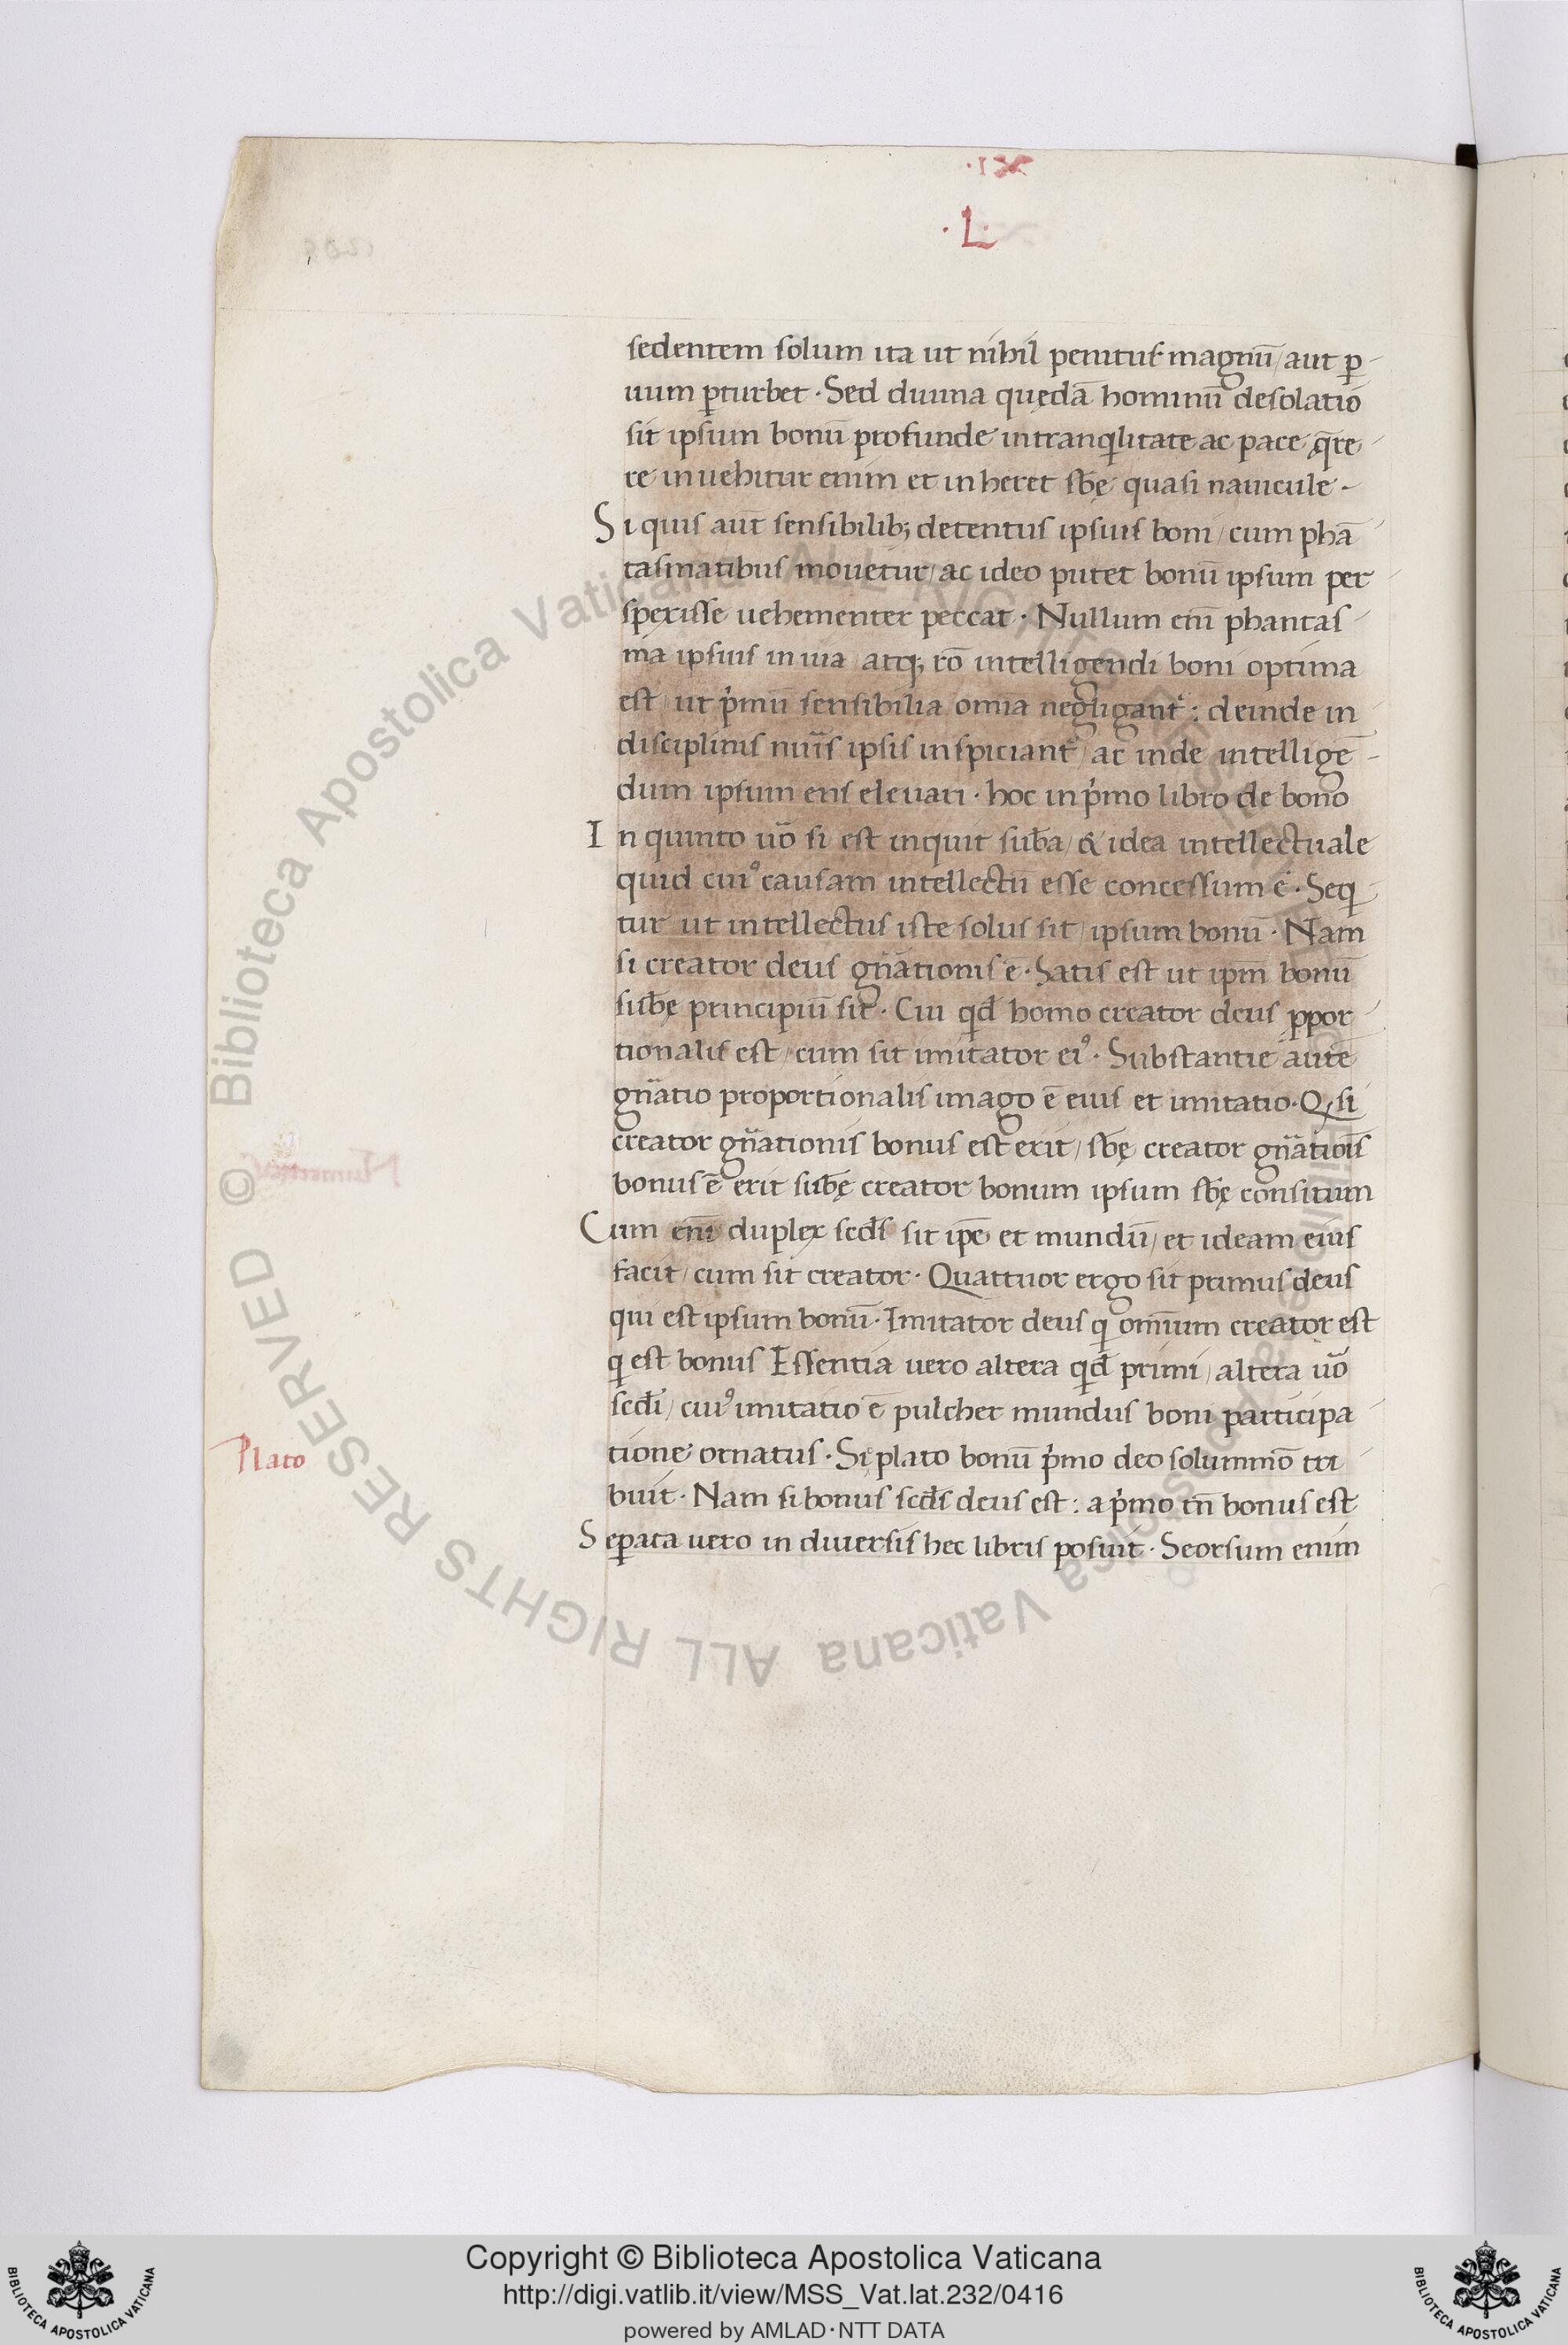 ·IX
·L·
sedentem solum ita ut nihil penitus magnū/ aut ꝑ-
uum ꝑturbet · Sed diuina quędā hominū desolatio
sit ipsum bonū profunde in tranqlitate ac pace q̄re-
re inuehitur enim et inheret sb̄ę quasi nauicule -
Si quis aut̄ sensibilib; detentus ipsius boni/ cum phā
tasmatibus mouetur/ ac ideo putet bonū ipsum per
spexisse uehementer peccat · Nullum eni̅ phantas-
ma ipsius in uia/ atq; rō intelligendi boni optima
est/ ut p̍mū sensibilia omīa negligant᷑ : deinde in
disciplinis nuīs ipsis inspiciant᷑/ ac inde intelligē-
dum ipsum ens eleuati · hoc in p̍mo libro de bono
In quinto uō si est inquit sub̄a/ & idea intellectuale
quid cui⁹ causam intellectū esse concessum ē · Seq-
tur ut intellectus iste solus sit/ ipsum bonū · Nam
si creator deus gn̄ationis ē · Satis est ut ip̄m bonū
sub̄ę principiū sit · Cui qd̄ homo creator deus ꝓpor-
tionalis est/ cum sit imitator ei⁹ · Substantie aute̅
gn̄atio proportionalis imago ē eius et imitatio · Q, si
creator gn̄ationis bonus est erit/ sb̄ę creator gn̄atiois
bonus ē erit sub̄ę creator bonum ipsum sb̄ę consitum
Cum eni̅ duplex scd̄s sit ip̄e et mundū/ et ideam eius
facit/ cum sit creator · Quattuor ergo sit primus deus
qui est ipsum bonū · Imitator deus q omīum creator est
q est bonus Essentia uero altera qd̄ primi/ altera uō
scd̄i/ cui⁹ imitatio ē pulcher mundus boni participa
tione ornatus · Sic plato bonū p̍mo deo solummō tri
buit · Nam si bonus scd̄s deus est : a p̍mo tn̄ bonus est
Seꝑata uero in diuersis hec libris posuit · Seorsum enim
Plato
Copyright © Biblioteca Apostolica Vaticana
http://digi.vatlib.it/view/MSS_Vat.lat.232/0416
powered by AMLAD·NTT DATA
BIBLIOTECA APOSTOLICA VATICANA
BIBLIOTECA APOSTOLICA VATICANA
© Biblioteca Apostolica Vaticana ALL RIGHTS RESERVED
© Biblioteca Apostolica Vaticana ALL RIGHTS RESERVED